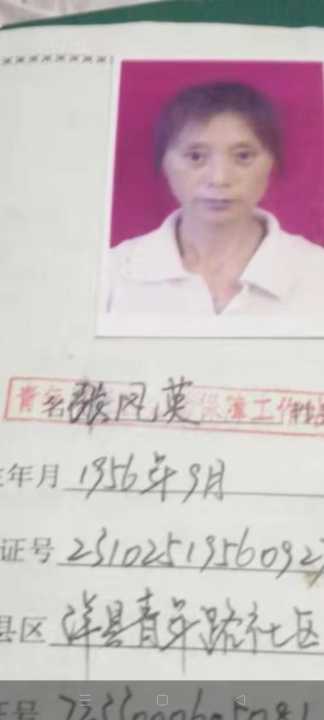 姓名 张凤英 保障工作
年月 1956年9月
证号 23102519560927
县区 洋县青年路社区